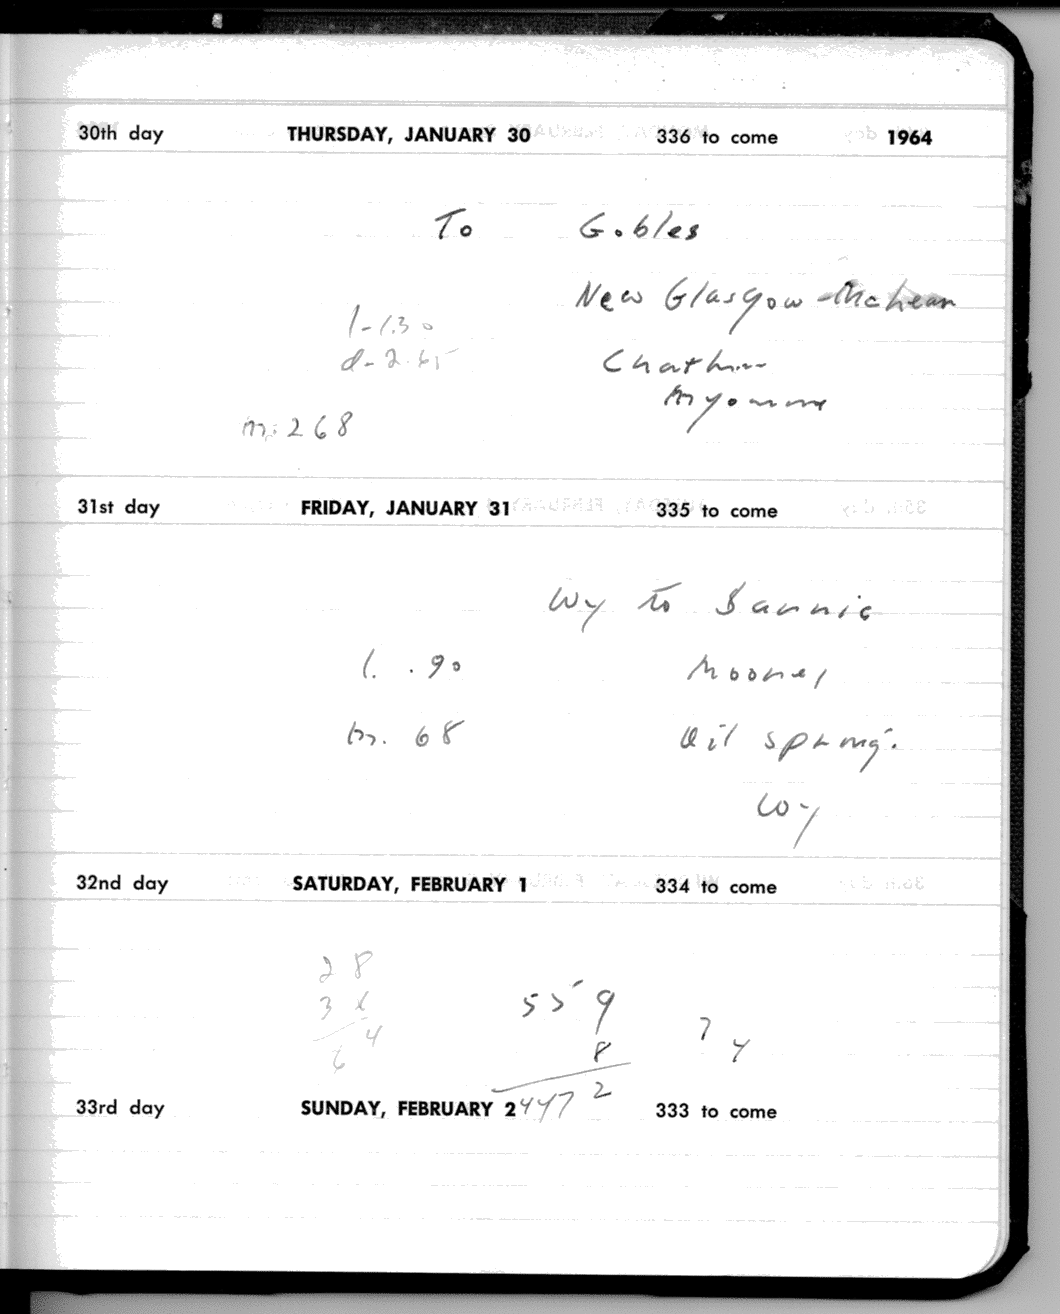 30th day THURSDAY, JANUARY 30 336 to come 1964
To Gobles
New Glasgow - McLean
l - 1.30
d - 2.65
Chatham
m. 268
31st day FRIDAY, JANUARY 31 335 to come
Wy to
l. .90
m. 68
Oil spring.
Wy
32nd day SATURDAY, FEBRUARY 1 334 to come
28
36
64
559
8
4472
74
33rd day SUNDAY, FEBRUARY 2 333 to come